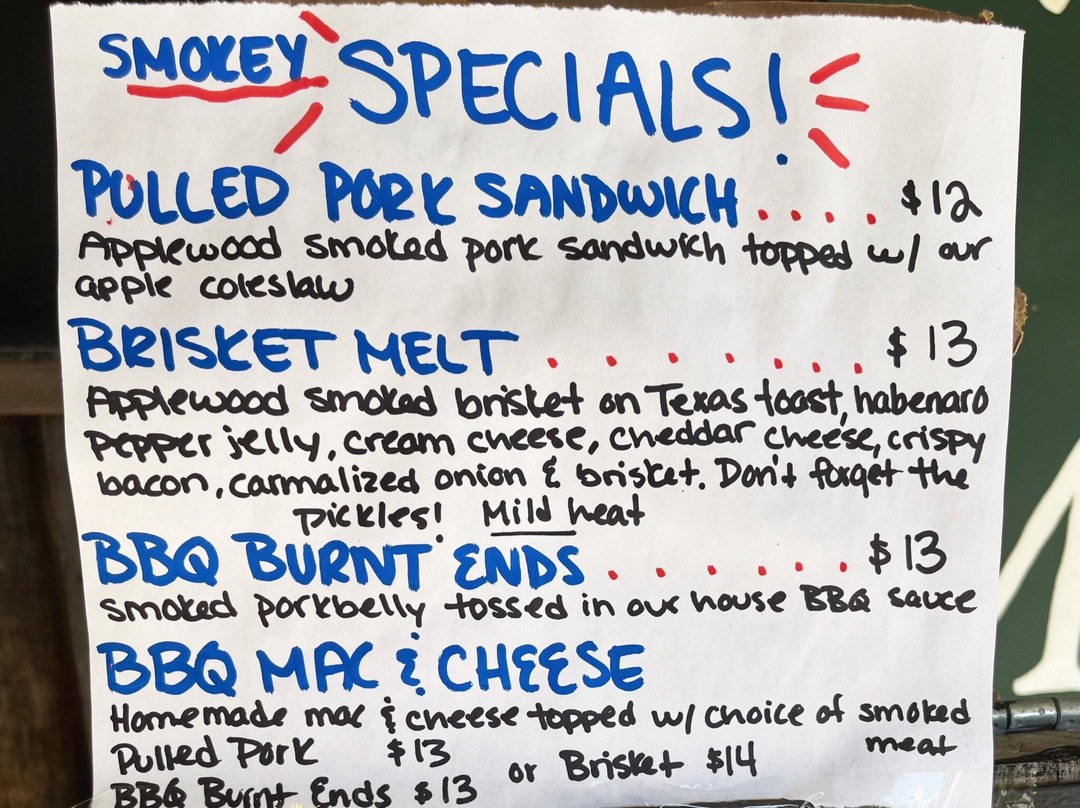 SMOKEY SPECIALS!
PULLED PORK SANDWICH.... $12
Applewood smoked pork sandwich topped w/ our
apple coleslaw
BRISKET MELT ....... $13
Applewood smoked brisket on Texas toast, habenaro
pepper jelly, cream cheese, cheddar cheese, crispy
bacon, carmalized onion & brisket. Don't forget the
pickles! Mild heat
BBQ BURNT ENDS ...... $13
smoked porkbelly tossed in our house BBQ sauce
BBQ MAC & CHEESE
Homemade mac & cheese topped w/ choice of smoked
meat
Pulled Pork $13
or Brisket $14
BBQ Burnt Ends $13